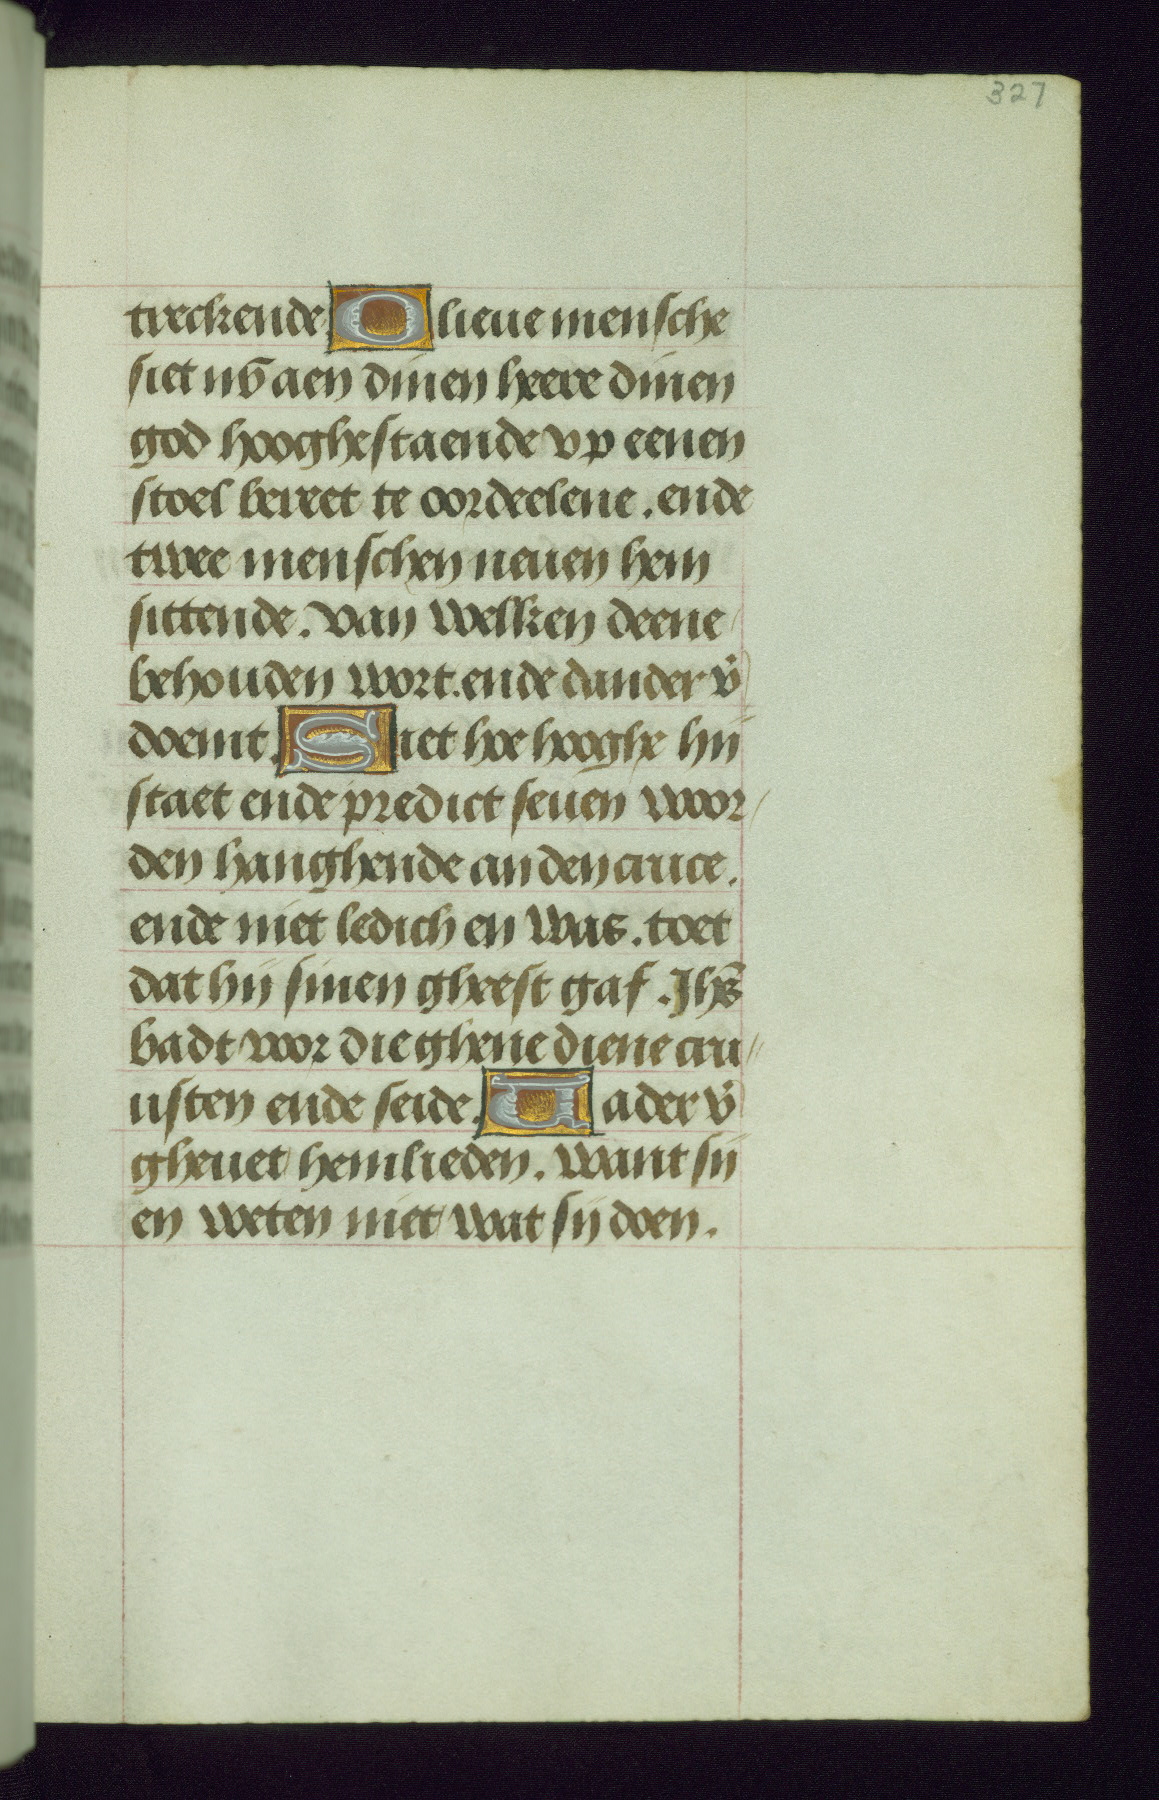 327
treckende. O lieue mensche
siet nv̄ aen dinen heere dinen
god hooghe staende vp eenen
stoel bereet te oordeelene. ende
twee menschen neuen hem
sittende. van welken deene
behouden wort. ende dander v̾
doemt. Siet hoe hooghe hij
staet ende predict seuen woor/
den hanghende an den cruce.
ende niet ledich en was. toet
dat hij sinen gheest gaf. Jhs̄
badt voor die ghene diene cru//
usten ende seide. Vader v̾
gheuet hemlieden. want sij
en weten niet wat sij doen.